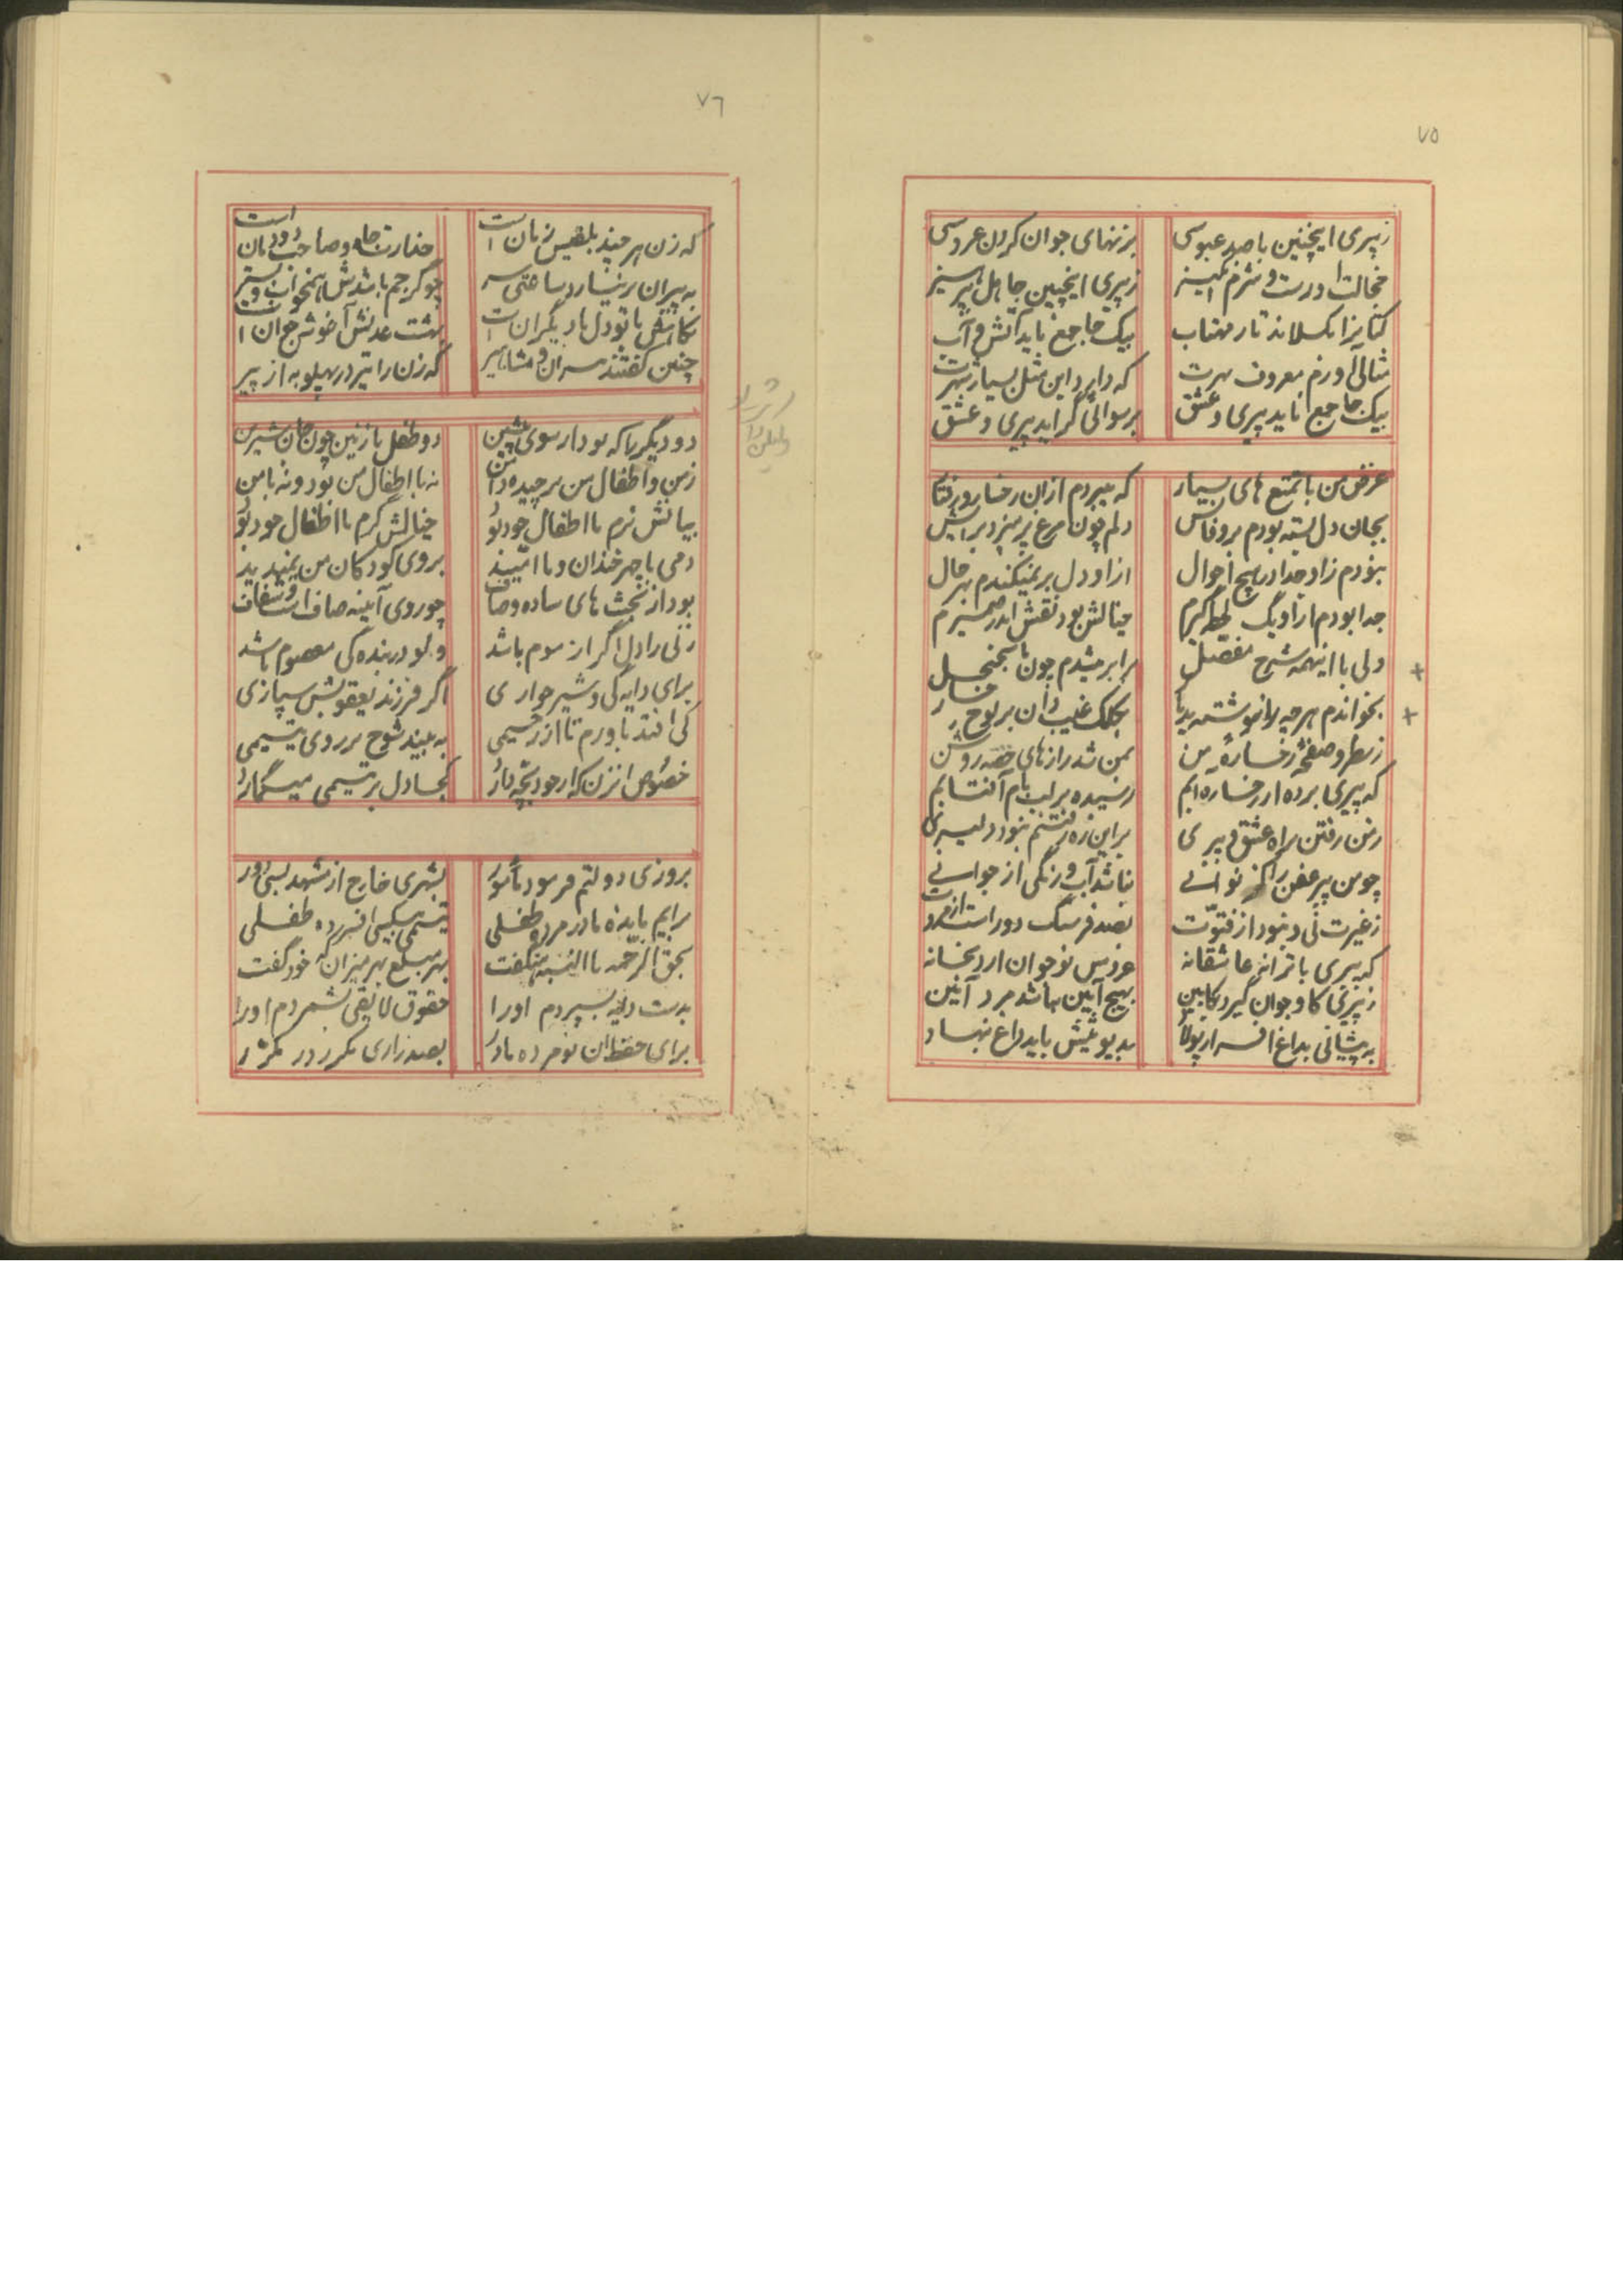 ٧٥
ز پیری اینچنین با صد عبوسی برزنهای جوان کردن عروسی
خجالت آورست و شرم انگیز ز پیری اینچنین جاهل بپرهیز
کتانرا بگسلاند تار مهتاب بیک جا جمع ناید آتش و آب
مثالی آورم معروف بهرت که دارد این مثل بسیار شهرت
بیک جا جمع ناید پیری و عشق برسوائی گراید پیری و عشق
غرض من با تمتع های بسیار که میبردم از آن رخسار و رفتار
بجان دل بسته بودم بر وفاش دلم چون مرغ پر میزد برایش
نبودم زاو جدا در هیچ احوال از او دل بر نمیکندم بهر حال
جدا بودم ار از او یک لحظه گیرم خیالش بود نقش اندر ضمیرم
ولی با اینهمه شرح مفصل برابر میشدم چون با سجنجل
بخواندم هرچه را ننوشته بد یار بکلک غیب دان بر لوح رخسار
ز سطر و صفحه رخساره من بمن شد رازهای خفته روشن
که پیری برده از رخساره ابم رسیده بر لب بام آفتابم
زمن رفتن براه عشق و پیری بر این ره رفتنم نبود دلیری
چو من پیر عفن را کز نوانی نباشد آب و رنگی از جوانی
ز غیرت نی و نبود از فتوّت بصد فرسنگ دور است از مروت
که پیری با ترانه عاشقانه عروس نوجوان ارد بخانه
ز پیری کاو جوان گیرد بکابین بهیچ آیین نباشد مرد آئین
به پیشانی بداغ افسر از پولاد بدیوثیش باید داغ بنهاد
٧٦
که زن هر چند بلقیس زمان است خدارت جاه و صاحب دودمان است
به پیران بر نیارد ساعتی سر چو گر جم باشدش همخواب و بستر
نکاحش با تو دل با دیگران است بهشت عدنش آغوش جوان است
چنین گفتند سران و مشاهیر که زن را تیر در پهلو به از پیر
دو دیگر با که بودار سوی پیشین دو طفل نازنین چون جان شیرین
زمن و اطفال من برچیده دامن نه با اطفال من بود و نه با من
بیانش نرم با اطفال خود بود خیالش گرم با اطفال خود بود
دمی با چهر خندان و با امید بروی کودکان من نمیدید
بود از نخست های ساده و صاف چو روی آینه صاف است و شفاف
زنی را دل اگر از موم باشد ولو در بنده گی معصوم باشد
برای دایه گی و شیر خواری اگر فرزند یعقوبش سپاری
کی افتد باورم تا از رحیمی به بیند شوخ بر روی یتیمی
خصوص انزن که از خود بچه دارد کجا دل بر یتیمی میگمارد
بروزی دولتم فرمود مأمور بشهری خارج از مشهد بسی دور
برایم مانده مادر مرده طفلی یتیمی بیکسی افسرده طفلی
بحق الزحمه با النسبه هنگفت بهر مبلغ بهر میزان که خود گفت
بدست دایه بسپردم او را حقوق لایقی بشمردم او را
برای حفظ ان نو مرده مادر بصد زاری مکرر در مکرر